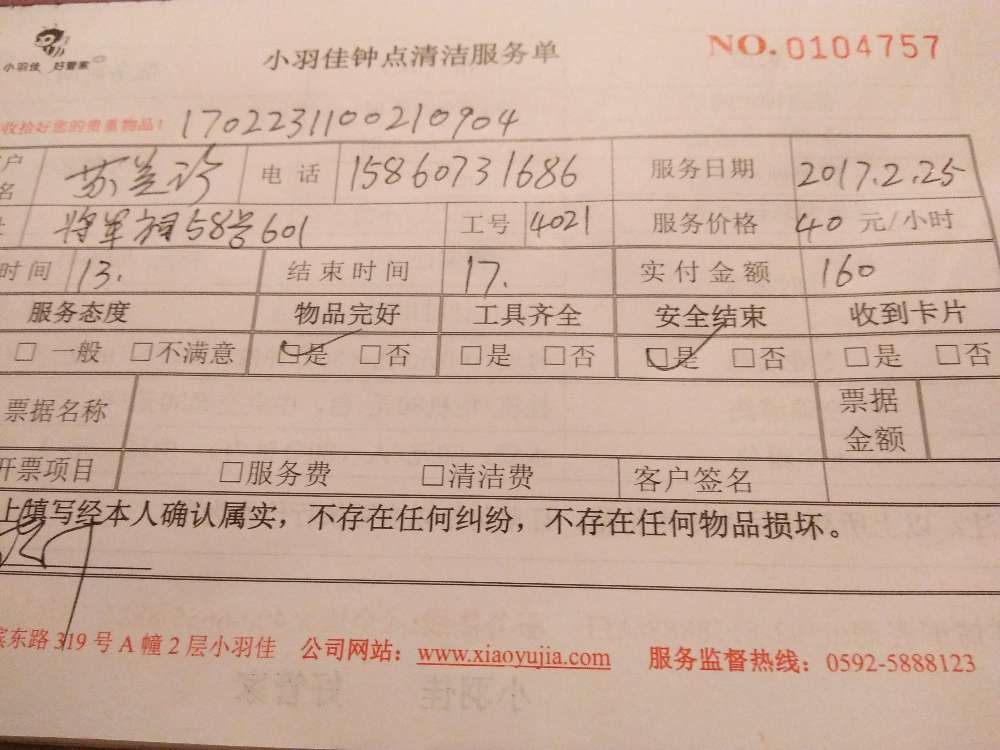 小羽佳 好管家
小羽佳钟点清洁服务单 NO.0104757
收拾好您的贵重物品! 1702231100210904
户名 苏兰 电话 15860731686 服务日期 2017.2.25
将军祠58号601 工号 4021 服务价格 40 元/小时
时间 13. 结束时间 17. 实付金额 160
服务态度 物品完好 工具齐全 安全结束 收到卡片
□ 一般 □不满意 □是 □否 □是 □否 □是 □否 □是 □否
票据名称 票据金额
开票项目 □服务费 □清洁费 客户签名
上填写经本人确认属实，不存在任何纠纷，不存在任何物品损坏。
滨东路319号A幢2层小羽佳 公司网站：www.xiaoyujia.com 服务监督热线：0592-5888123